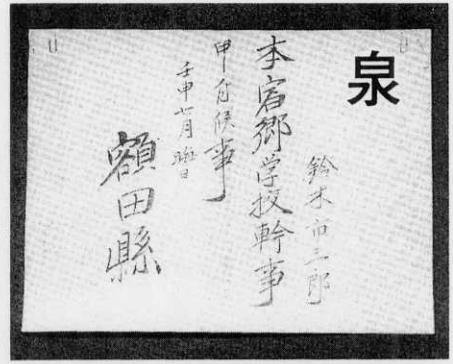 泉
鈴木市三郎
本宿郷学校幹事
申付候事
壬申七月晦日
額田縣